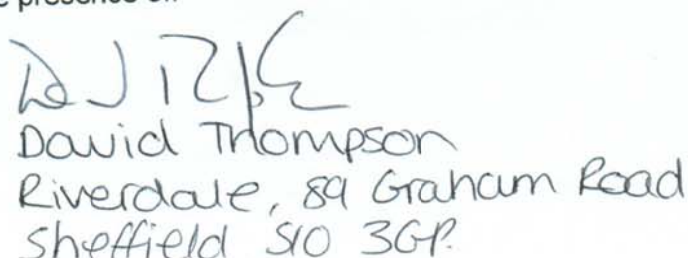 presence of
David Thompson
Riverdale, 89 Graham Road
Sheffield S10 3GP.